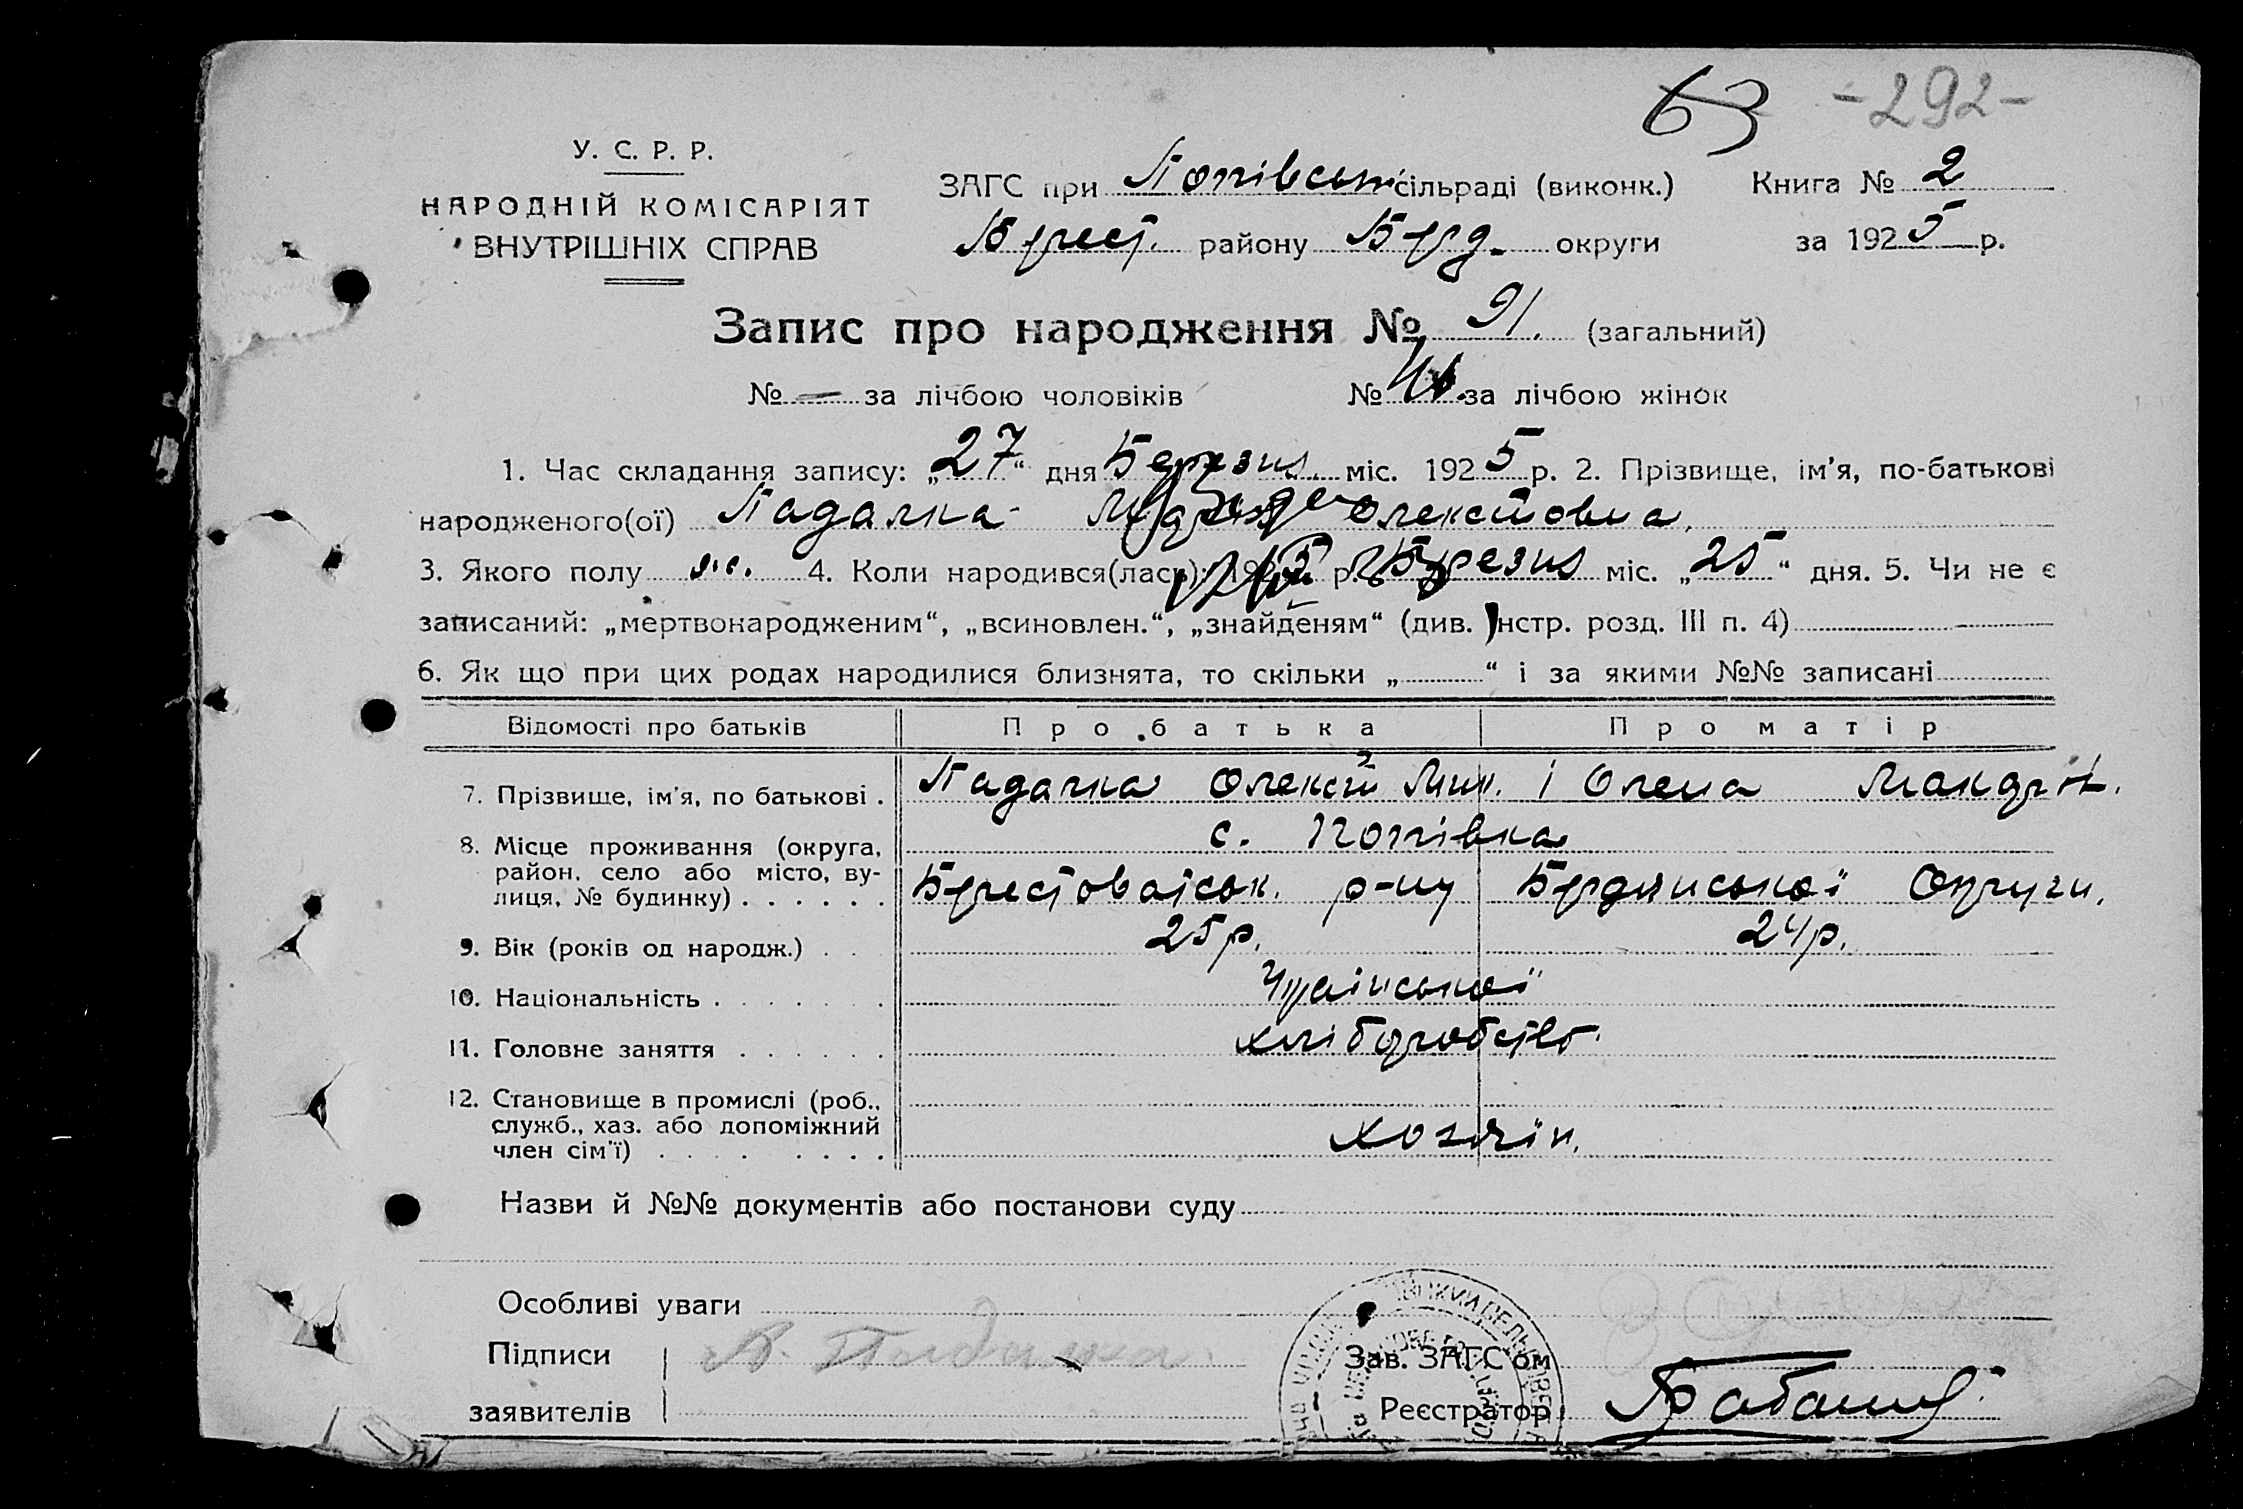 63 -292-
У. С. Р. Р.
НАРОДНІЙ КОМІСАРІЯТ
ВНУТРІШНІХ СПРАВ
ЗАГС при Попівськ. сільраді (виконк.) Книга № 2
Брест. району Берд. округи за 1925 р.
Запис про народження № 91. (загальний)
№ — за лічбою чоловіків № за лічбою жінок
1. Час складання запису: „27“ дня Березня міс. 1925 р. 2. Прізвище, ім'я, по-батькові
народженого(ої) Падалка Олексіївна.
3. Якого полу ж. 4. Коли народився(лась) 192 р. Березня міс. „25“ дня. 5. Чи не є
записаний: „мертвонародженим“, „всиновлен.“, „знайденям“ (див. Інстр. розд. III п. 4)
6. Як що при цих родах народилися близнята, то скільки „ “ і за якими №№ записані
Відомості про батьків Про батька Про матір
7. Прізвище, ім'я, по батькові . Падалка Олексій Мик. і Олена Макар.
8. Місце проживання (округа, с. Попівка
район, село або місто, ву-
лиця, № будинку) . . . . . . Берестоватськ. р-ну Бердянської Округи.
9. Вік (років од народж.) . . 25 р. 24 р.
10. Національність . . . . . . Української
11. Головне заняття . . . . . . хліборобство.
12. Становище в промислі (роб.,
служб., хаз. або допоміжний
член сім'ї) . . . . . . . . хозяїн.
Назви й №№ документів або постанови суду
Особливі уваги
Підписи А. Падалка. Зав. ЗАГС'ом
заявителів Реєстратор